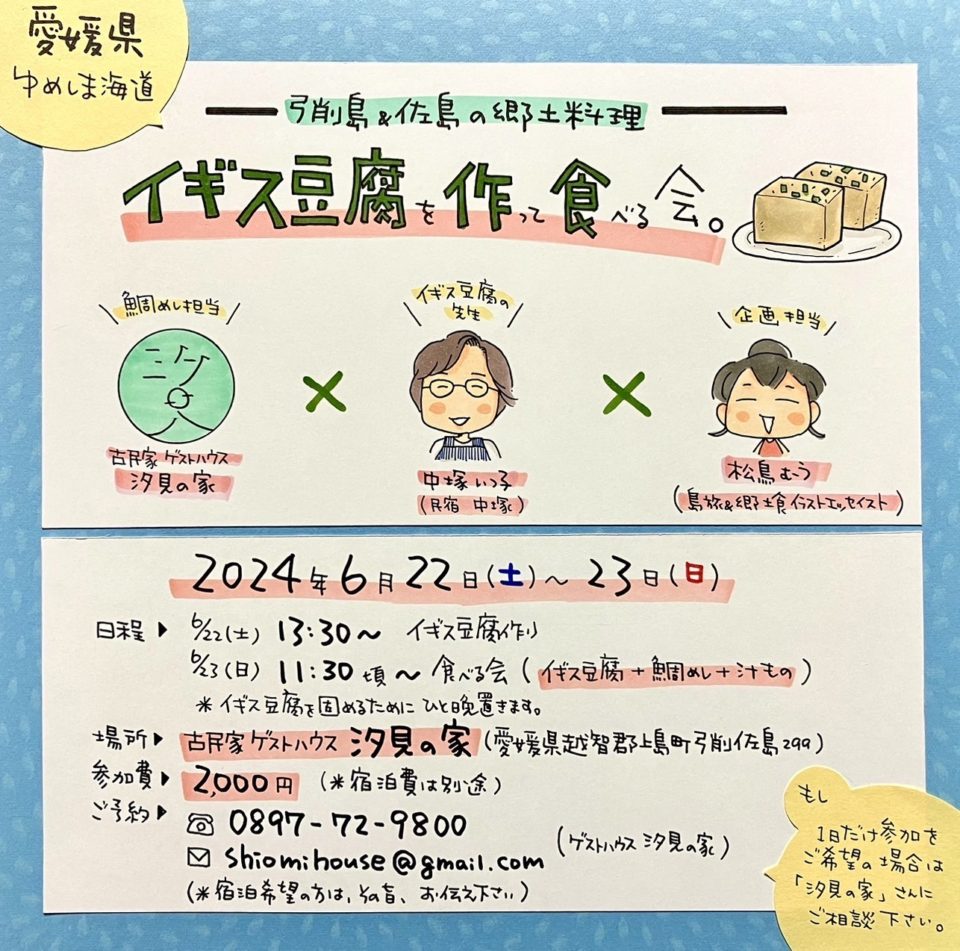 愛媛県
ゆめしま海道
弓削島&佐島の郷土料理
イギス豆腐を作って食べる会。
鯛めし担当
汐見
古民家ゲストハウス
汐見の家
×
イギス豆腐の
先生
中塚いつ子
(民宿 中塚)
×
企画担当
松鳥むう
(島旅&郷土食イラストエッセイスト)
2024年6月22日(土)~23日(日)
日程▶ 6/22(土) 13:30~ イギス豆腐作り
6/23(日) 11:30頃~ 食べる会(イギス豆腐+鯛めし+汁もの)
*イギス豆腐を固めるためにひと晩置きます。
場所▶ 古民家ゲストハウス 汐見の家(愛媛県越智郡上島町弓削佐島299)
参加費▶ 2,000円 (*宿泊費は別途)
ご予約▶ ☎ 0897-72-9800
✉ shiomihouse@gmail.com
(ゲストハウス 汐見の家)
(*宿泊希望の方は、その旨、お伝え下さい)
もし
1日だけ参加を
ご希望の場合は
「汐見の家」さんに
ご相談下さい。